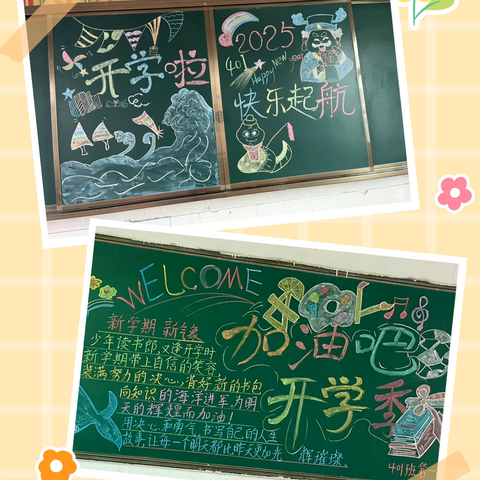 开学啦
2025
401
Happy New year
快乐起航
WELCOME
加油吧
开学季
新学期 新气象
少年读书郎,又逢开学时
新学期带上自信的笑容,
装满努力的决心,背好新的书包
向知识的海洋进军,为明
天的辉煌而加油!
用决心和勇气书写自己的人生
故事,让每一个明天都比昨天更加光辉璀璨。
401班